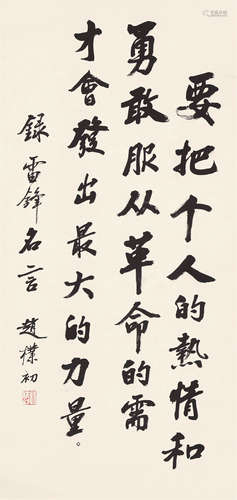 要把个人的熱情和
勇敢服从革命的需
才會發出最大的力量。
録雷鋒名言
趙樸初